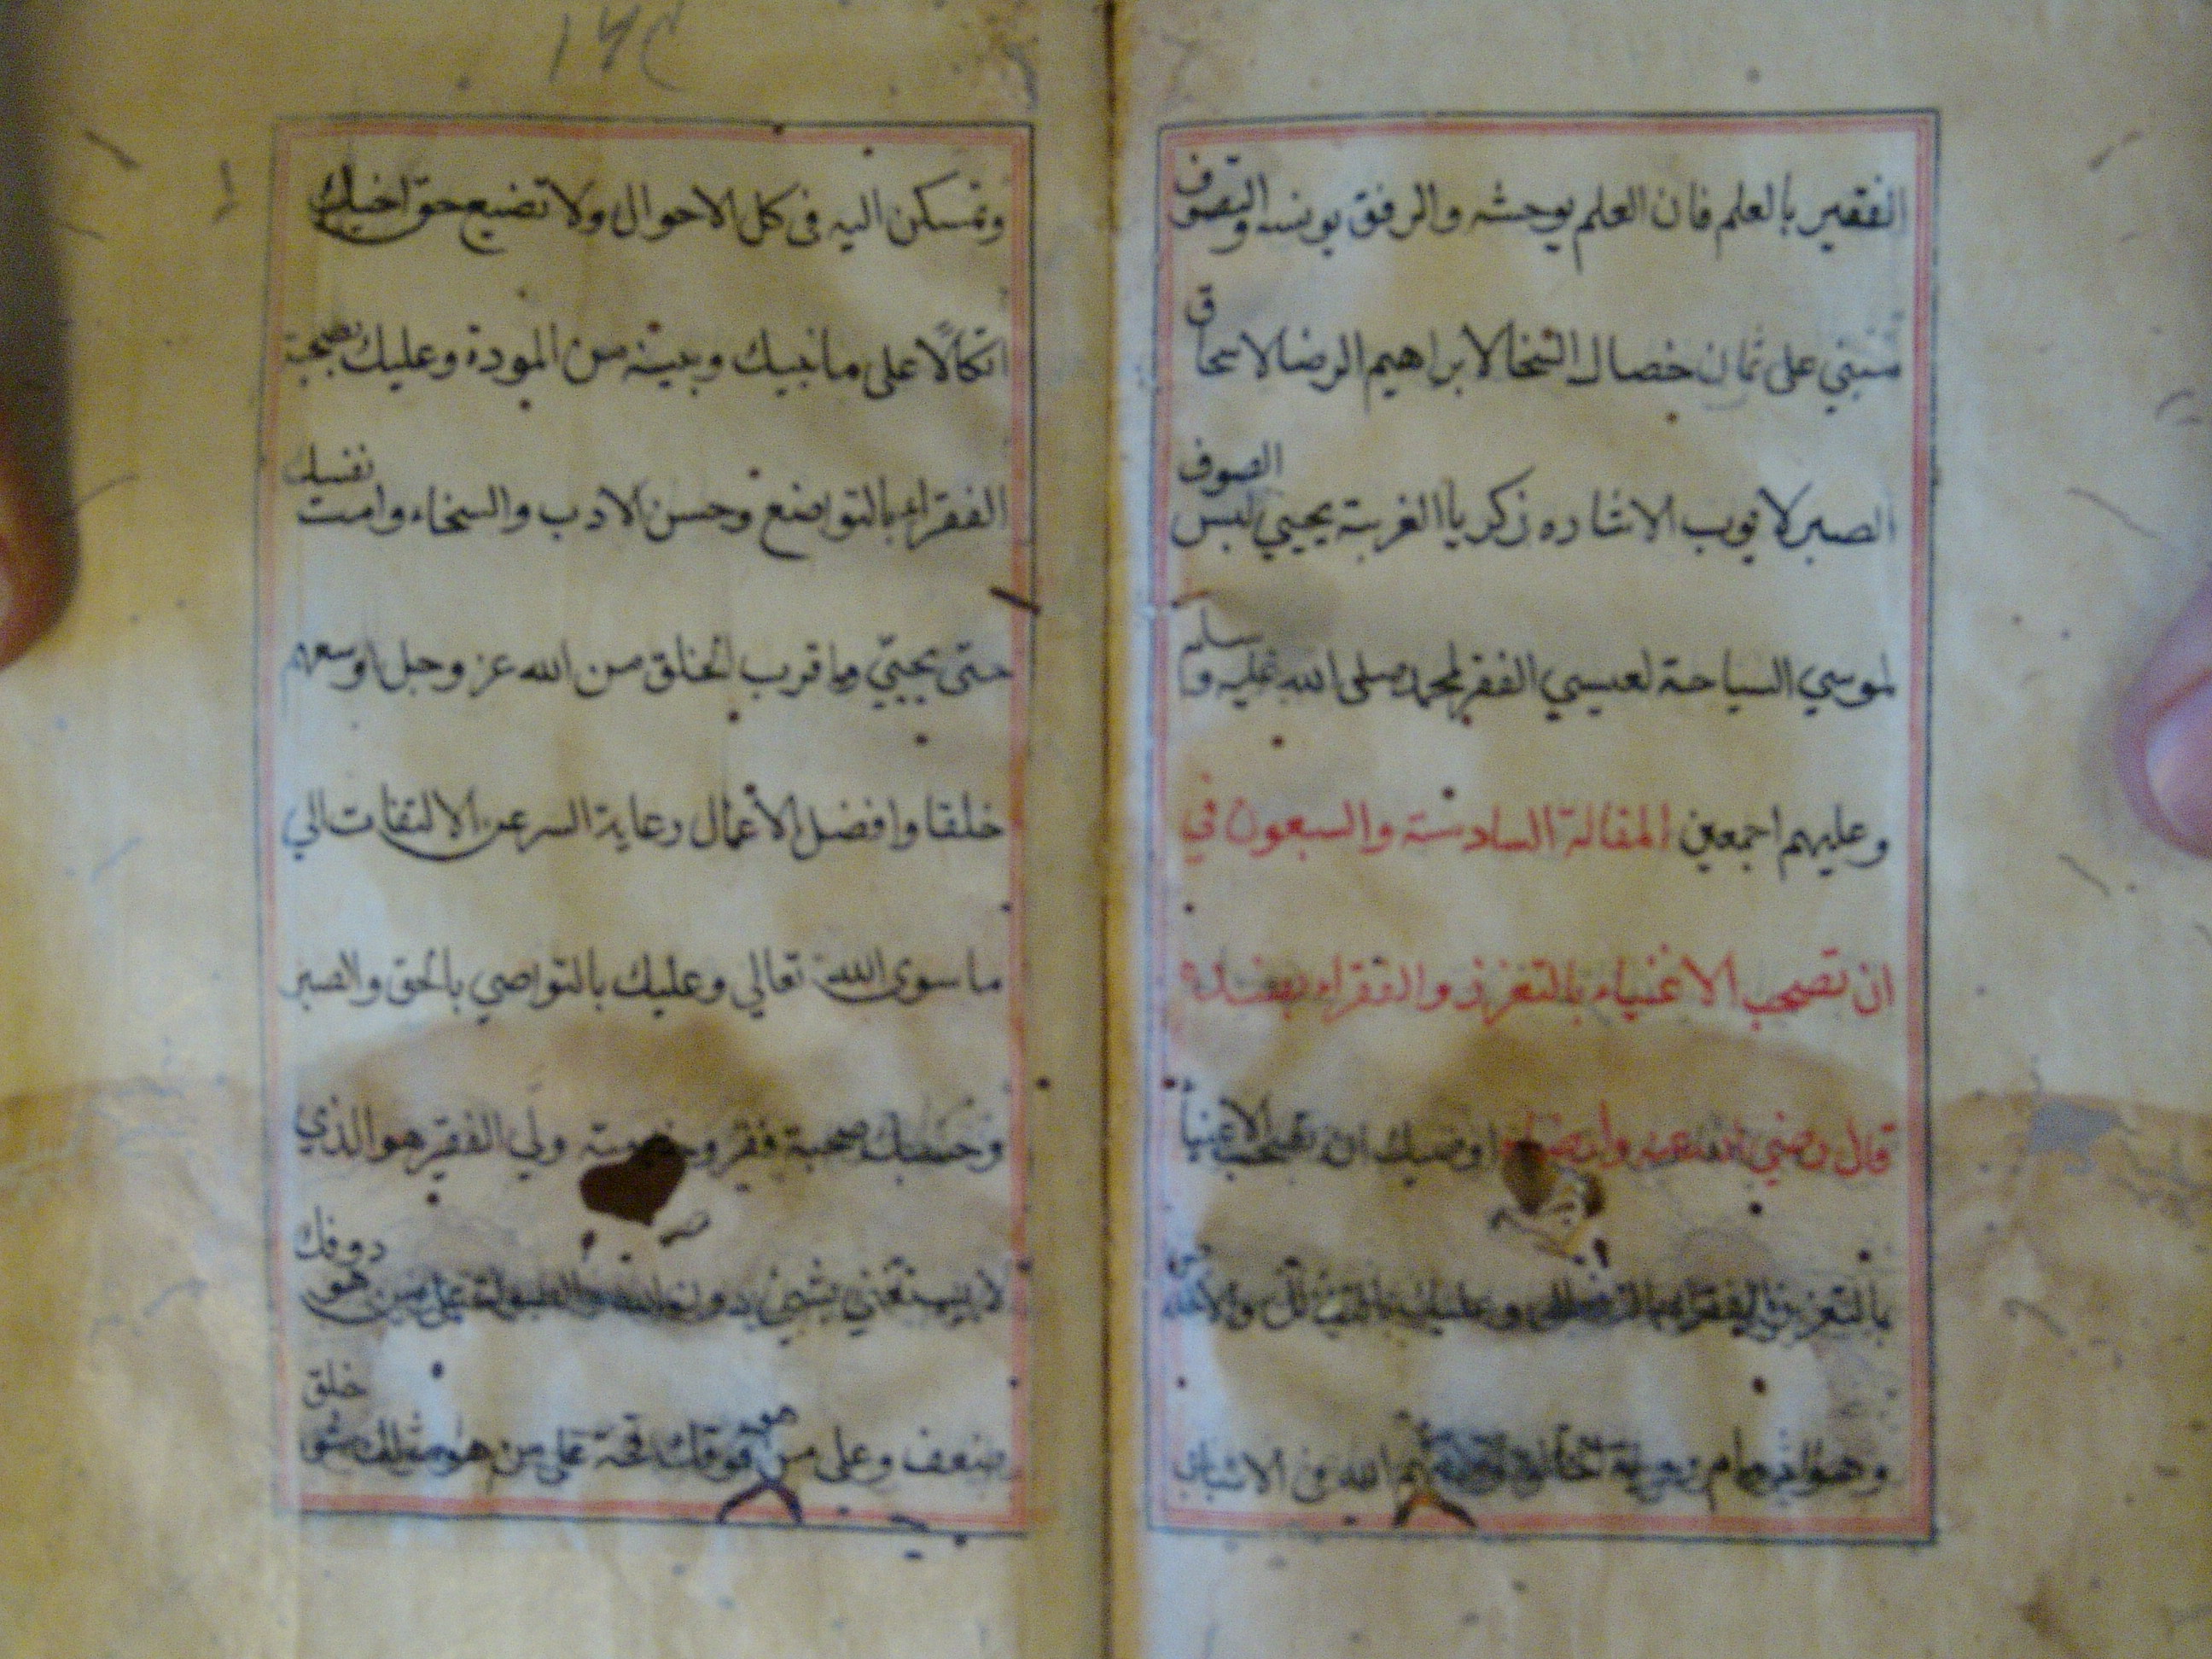 الفقير بالعلم فان العلم يوحشه والرفق يونسه والتصوف
مبني على ثمان خصال السخا لابراهيم الرضا لاسحاق
الصبر لايوب الاشاره زكريا الغربة يحيي لبس الصوف
لموسي السياحة لعيسي الفقر لمحمد صلى الله عليه وسلم
وعليهم اجمعين المقالة السادسة والسبعون في
ان تصحب الاغنياء بالتعزز والفقراء بضده
قال رضي الله عنه وارضاه اوصيك ان تصحب الاغنيا
بالتعزز والفقراء وعليك
وهو روية الله في الاسباب
١٧٢
وتمسكن اليه فى كل الاحوال ولا تضيع حق اخيك
اتكالًا على ما بينك وبينه من المودة وعليك بصحبة
الفقراء بالتواضع وحسن الادب والسخاء وامت نفسك
حتى يحيي وما قرب الخلق من الله عز وجل اوسعهم
خلقا وافضل الأعمال رعاية السر عن الالتفات الي
ما سوى الله تعالي وعليك بالتواصي بالحق والصبر
وحسبك صحبة فقر وخدمة ولي الفقر هو الذي
لا يستغني بشئ دون على من هو دونك
ضعف وعلى من هو فوقك قحة على من هو مثلك سوء خلق